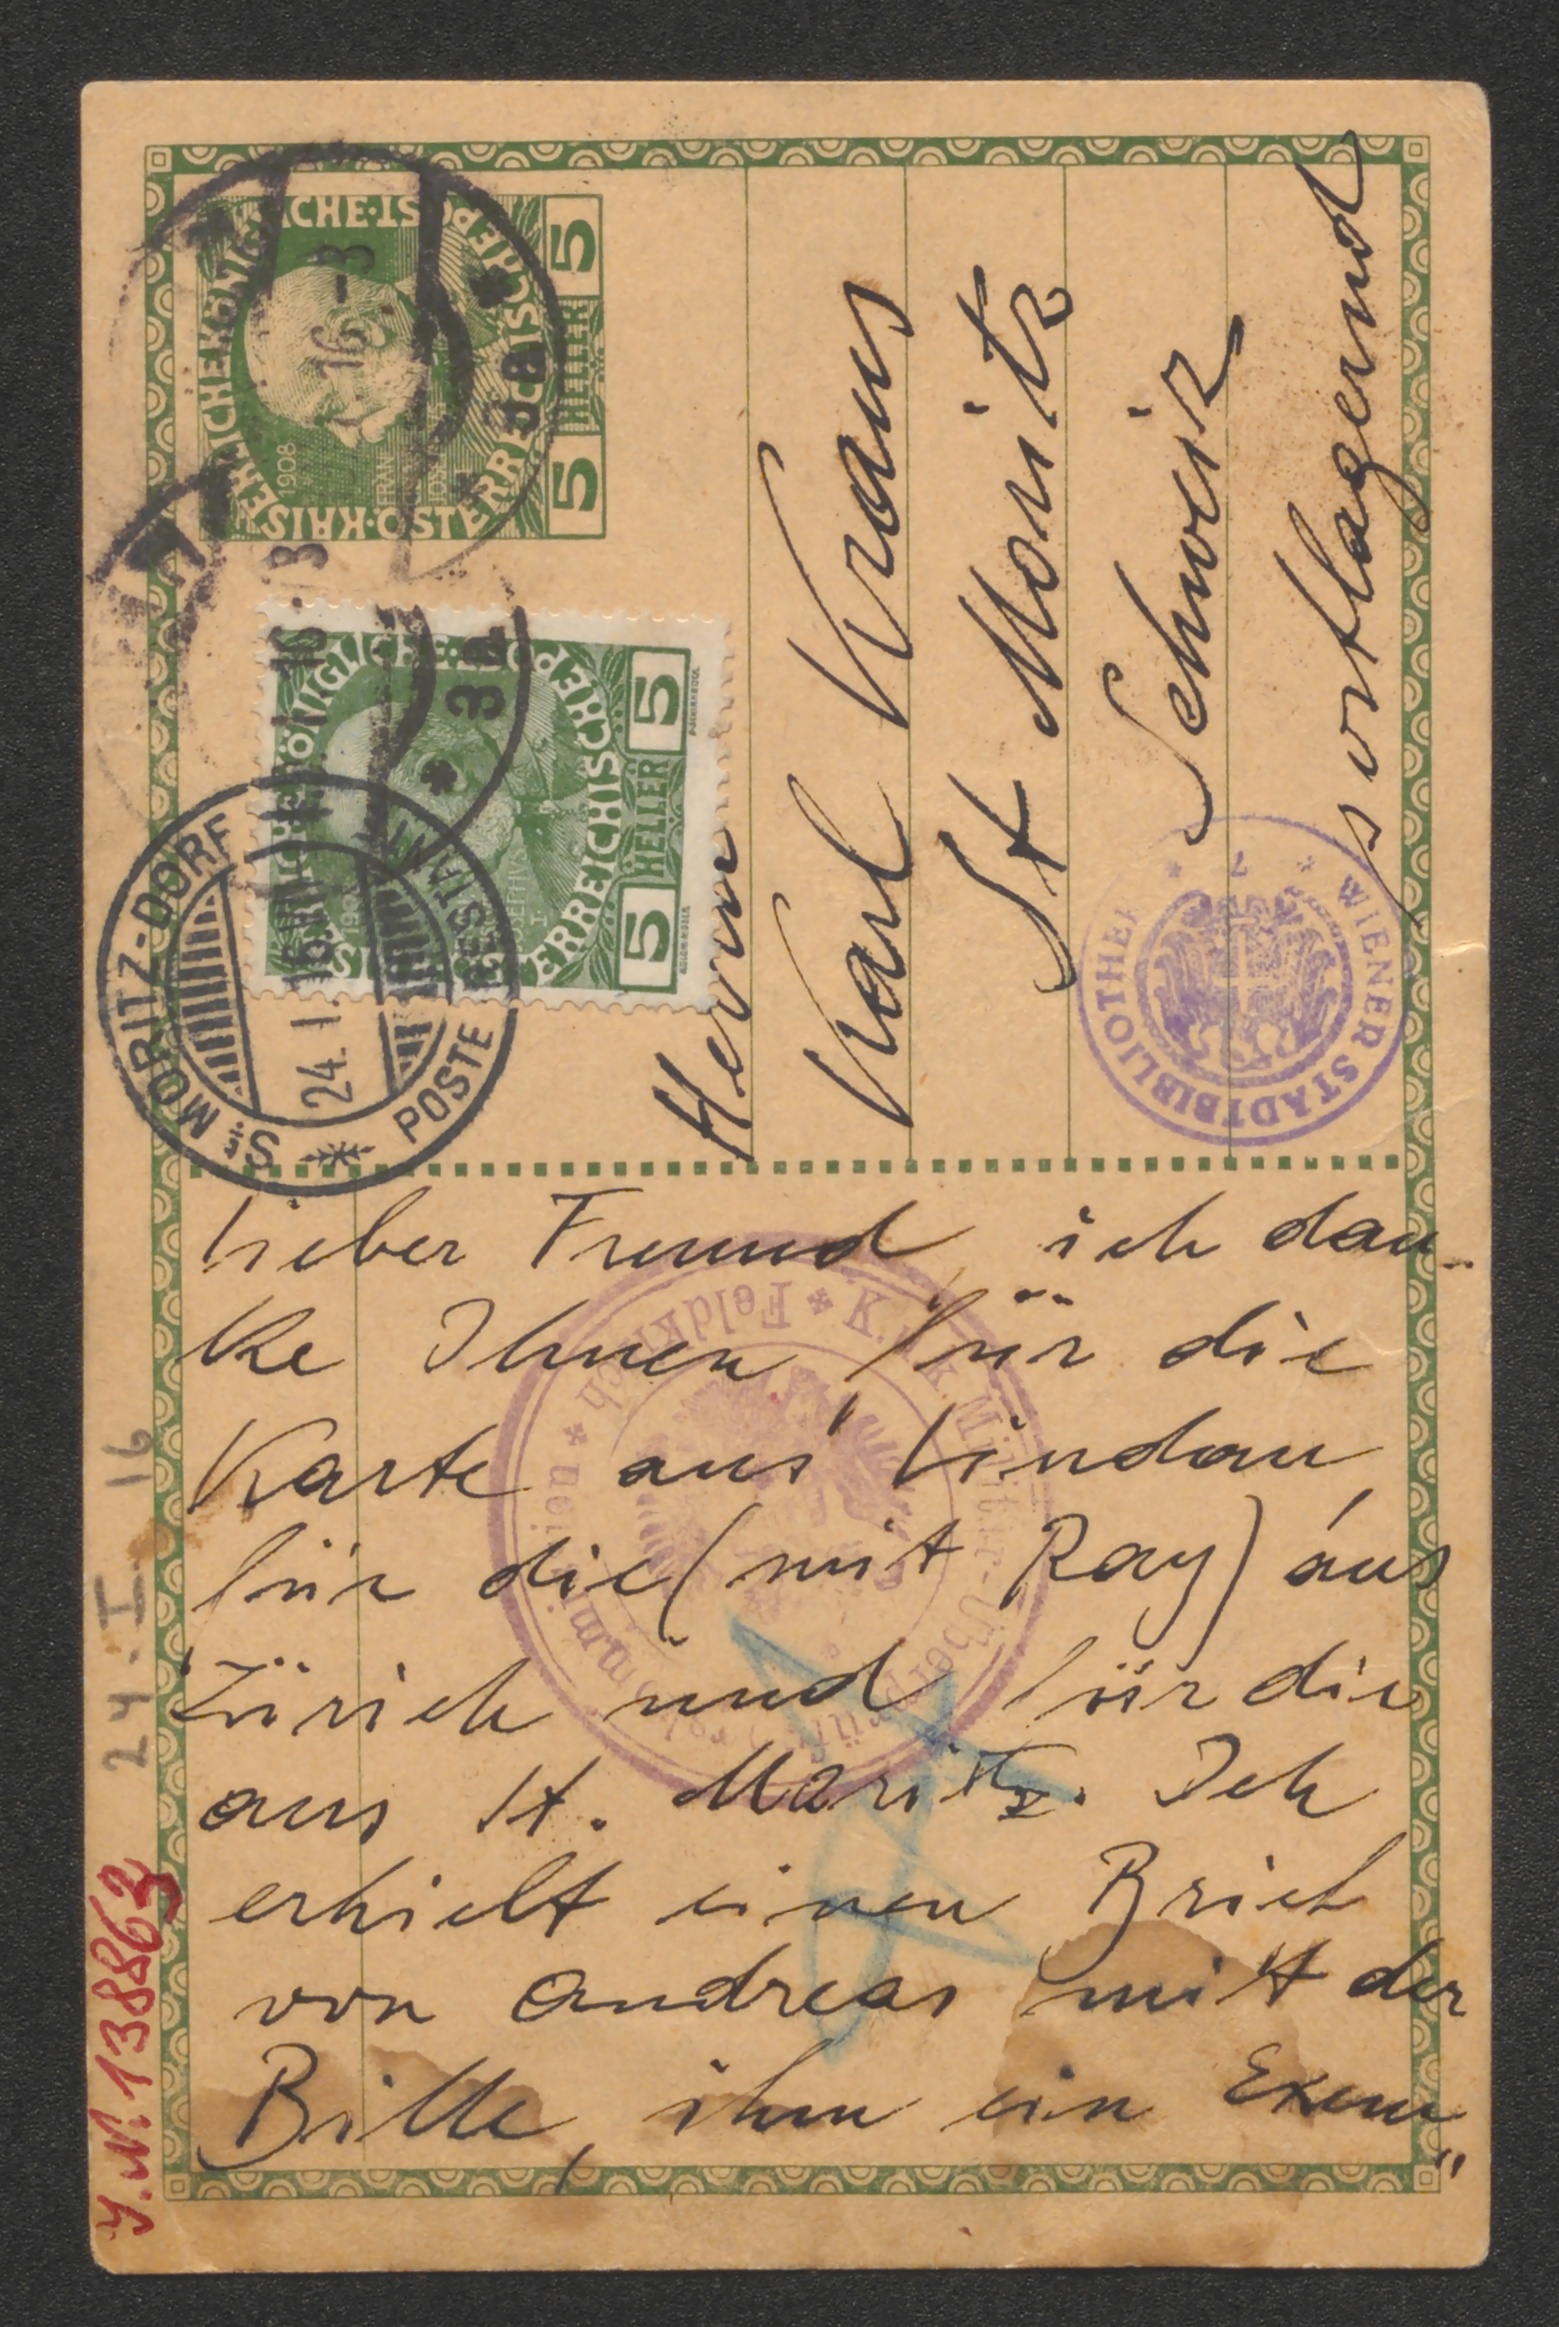 KAISERLICHE KÖNIGLICHE ÖSTERREICHISCHE POST
1908
FRANZ JOSEF I
5 HELLER 5
16.-3
3a
5 HELLER 5
ST MORITZ-DORF
24.I.16
POSTE RESTANTE
Herrn
Karl Kraus
St Moritz
Schweiz
postlagernd
WIENER STADTBIBLIOTHEK
Lieber Freund, ich dan-
ke Ihnen für die
Karte aus Lindau,
für die (mit Ray) aus
Zürich und für die
aus St. Moritz. Ich
erhielt einen Brief
von Andreas mit der
Bitte, ihm ein Exem"
K.u.k. Militär-Überprüfungskommission * Feldkirch *
24. I 16
J.N. 138863